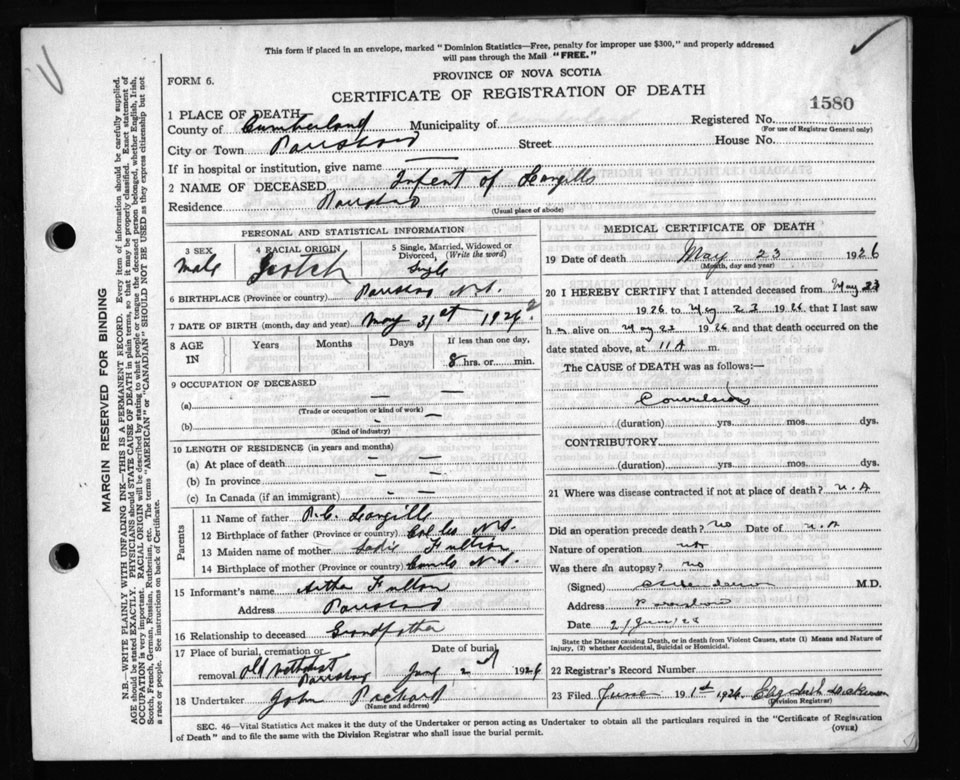 This form if placed in an envelope, marked "Dominion Statistics—Free, penalty for improper use $300," and properly addressed
will pass through the Mail "FREE."
FORM 6.
PROVINCE OF NOVA SCOTIA
CERTIFICATE OF REGISTRATION OF DEATH
1580
1 PLACE OF DEATH
County of Cumberland Municipality of Cumberland Registered No.
(For use of Registrar General only)
City or Town Parrsboro Street House No.
If in hospital or institution, give name —
2 NAME OF DECEASED Infant of
Residence Parrsboro
(Usual place of abode)
PERSONAL AND STATISTICAL INFORMATION
3 SEX Male
4 RACIAL ORIGIN Scotch
5 Single, Married, Widowed or
Divorced, (Write the word)
Single
6 BIRTHPLACE (Province or country) Parrsboro N.S.
7 DATE OF BIRTH (month, day and year) May 31st 1926
8 AGE IN Years Months Days If less than one day,
8 hrs. or min.
9 OCCUPATION OF DECEASED
(a) — —
(Trade or occupation or kind of work)
(b) —
(Kind of industry)
10 LENGTH OF RESIDENCE (in years and months)
(a) At place of death — —
(b) In province — —
(c) In Canada (if an immigrant) — —
Parents
11 Name of father
12 Birthplace of father (Province or country) N.S.
13 Maiden name of mother Sadie Fulton
14 Birthplace of mother (Province or country) N.S.
15 Informant's name Fulton
Address Parrsboro
16 Relationship to deceased Grandfather
17 Place of burial, cremation or
removal Old Methodist Parrsboro
Date of burial
June 2nd 1926
18 Undertaker John
(Name and address)
MEDICAL CERTIFICATE OF DEATH
19 Date of death May 23 1926
(Month, day and year)
20 I HEREBY CERTIFY that I attended deceased from May 23
1926 to May 23 1926 that I last saw
h m alive on May 23 1926 and that death occurred on
date stated above, at 11 A m.
The CAUSE of DEATH was as follows:—
Convulsions
(duration) yrs. mos. dys.
CONTRIBUTORY
(duration) yrs. mos. dys.
21 Where was disease contracted if not at place of death? N.A
Did an operation precede death? no Date of N.A
Nature of operation NA
Was there an autopsy? no
(Signed) M.D.
Address Parrsboro
Date 2/June/26
State the Disease causing Death, or in death from Violent Causes, state (1) Means and Nature of
Injury, (2) whether Accidental, Suicidal or Homicidal.
22 Registrar's Record Number
23 Filed June 1st 1926 Elizabeth
(Division Registrar)
SEC. 46—Vital Statistics Act makes it the duty of the Undertaker or person acting as Undertaker to obtain all the particulars required in the "Certificate of Registration
of Death" and to file the same with the Division Registrar who shall issue the burial permit.
(OVER)
MARGIN RESERVED FOR BINDING
N.B.—WRITE PLAINLY WITH UNFADING INK—THIS IS A PERMANENT RECORD. Every item of information should be carefully supplied.
AGE should be stated EXACTLY. PHYSICIANS should STATE CAUSE OF DEATH in plain terms, so that it may be properly classified. Exact statement of
OCCUPATION is very important. RACIAL ORIGIN will be described by stating to what people or tongue the deceased person belonged, whether English, Irish,
Scotch, French, German, Russian, Ruthenian, etc. The terms "AMERICAN" or "CANADIAN" SHOULD NOT BE USED as they express citizenship but not
a race or people. See instructions on back of Certificate.